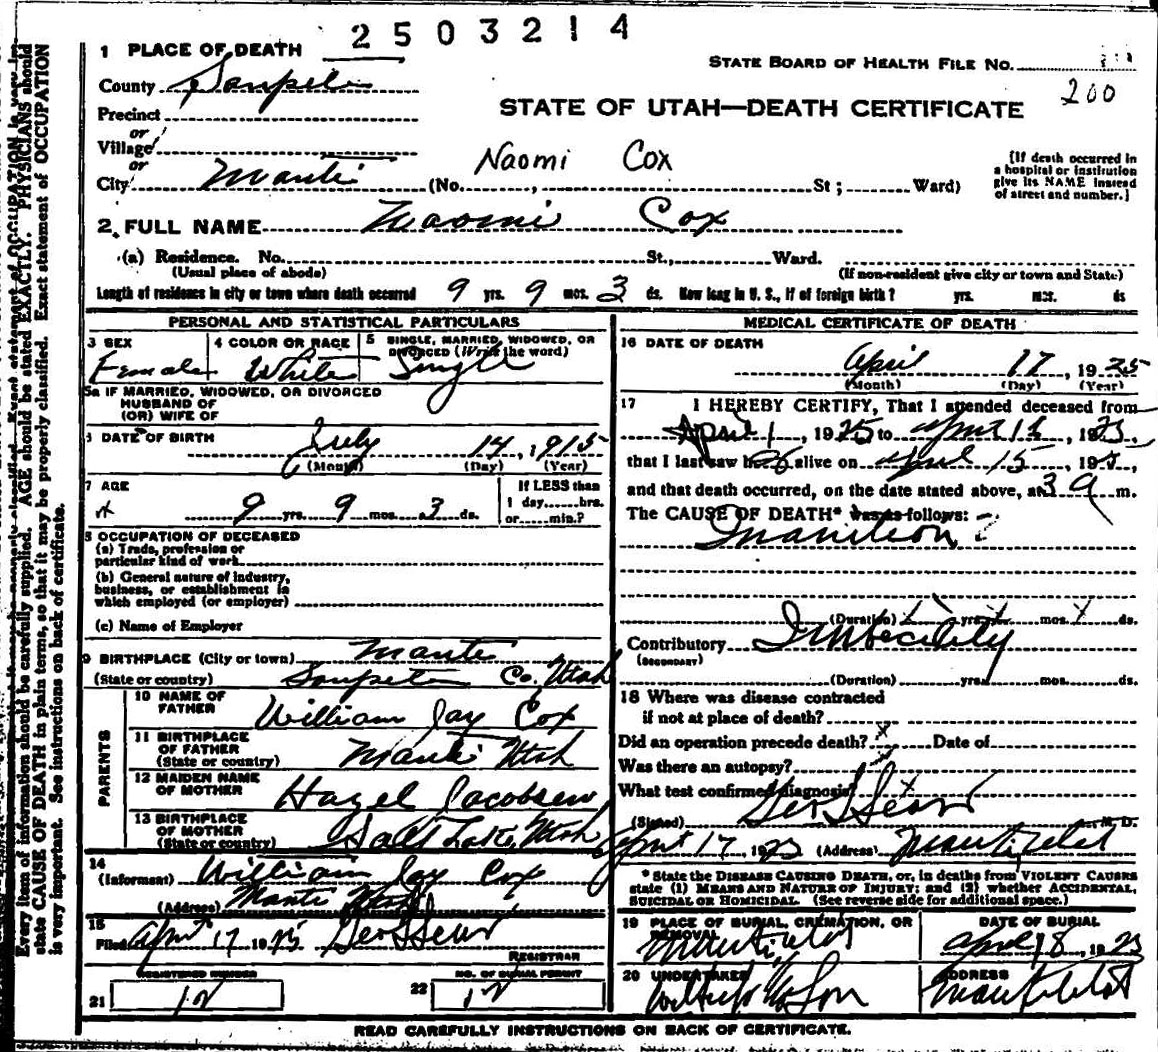 2503214
1 PLACE OF DEATH
STATE BOARD OF HEALTH FILE NO.
200
County Sanpete
STATE OF UTAH—DEATH CERTIFICATE
Precinct
or
Village
or
Naomi Cox
City Manti (No. , St; Ward)
[If death occurred in
a hospital or institution
give its NAME instead
of street and number.]
2. FULL NAME Naomi Cox
(a) Residence. No. St., Ward.
(Usual place of abode)
(If non-resident give city or town and State)
Length of residence in city or town where death occurred 9 yrs. 9 mos. 3 ds. How long in U. S., if of foreign birth? yrs. mos. ds
PERSONAL AND STATISTICAL PARTICULARS
3 SEX
Female
4 COLOR OR RACE
White
5 SINGLE, MARRIED, WIDOWED, OR
DIVORCED (Write the word)
Single
5a IF MARRIED, WIDOWED, OR DIVORCED
HUSBAND OF
(OR) WIFE OF
DATE OF BIRTH
July 14, 1915
(Month) (Day) (Year)
7 AGE
9 yrs. 9 mos. 3 ds.
If LESS than
1 day hrs.
or min.?
8 OCCUPATION OF DECEASED
(a) Trade, profession or
particular kind of work
(b) General nature of industry,
business, or establishment in
which employed (or employer)
(c) Name of Employer
9 BIRTHPLACE (City or town) Manti
(State or country) Sanpete Co. Utah
PARENTS
10 NAME OF
FATHER William Jay Cox
11 BIRTHPLACE
OF FATHER
(State or country) Manti Utah
12 MAIDEN NAME
OF MOTHER Hazel Jacobsen
13 BIRTHPLACE
OF MOTHER
(State or country) Salt Lake, Utah
14
(Informant) William Jay Cox
(Address) Manti Utah
15
Filed April 17 1925
REGISTRAR
REGISTERED NUMBER
21 12
NO. OF BURIAL PERMIT
22 12
MEDICAL CERTIFICATE OF DEATH
16 DATE OF DEATH
April 17, 1925
(Month) (Day) (Year)
17 I HEREBY CERTIFY, That I attended deceased from
April 1, 1925 to April , 1925
that I last saw h alive on April 15, 1925,
and that death occurred, on the date stated above, at 3 a m.
The CAUSE OF DEATH* was as follows:
Inanition
(Duration) yrs. mos. ds.
Contributory Imbecility
(SECONDARY)
(Duration) yrs. mos. ds.
18 Where was disease contracted
if not at place of death?
Did an operation precede death? x Date of
Was there an autopsy? x
What test confirmed diagnosis? x
(Signed) M. D.
April 17, 1925 (Address) Manti, Utah
* State the DISEASE CAUSING DEATH, or, in deaths from VIOLENT CAUSES
state (1) MEANS AND NATURE OF INJURY; and (2) whether ACCIDENTAL,
SUICIDAL OR HOMICIDAL. (See reverse side for additional space.)
19 PLACE OF BURIAL, CREMATION, OR
REMOVAL
Manti, Utah
DATE OF BURIAL
April 18, 1925
20 UNDERTAKER
ADDRESS
Manti Utah
READ CAREFULLY INSTRUCTIONS ON BACK OF CERTIFICATE.
Every item of information should be carefully supplied. AGE should be stated EXACTLY. PHYSICIANS should
state CAUSE OF DEATH in plain terms, so that it may be properly classified. Exact statement of OCCUPATION
is very important. See instructions on back of certificate.